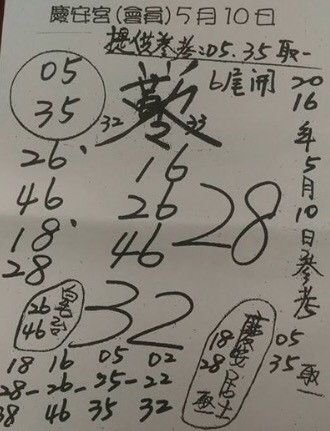 慶安宮(會員)5月10日
提供參考:05.35取一
05
35
6尾開
32 33
2016年5月10日參考
26
46
18
28
16
26
46
28
32
26
46
18
28
取一
05
35取一
18 16 05 02
28-26-25-22
38 46 35 32